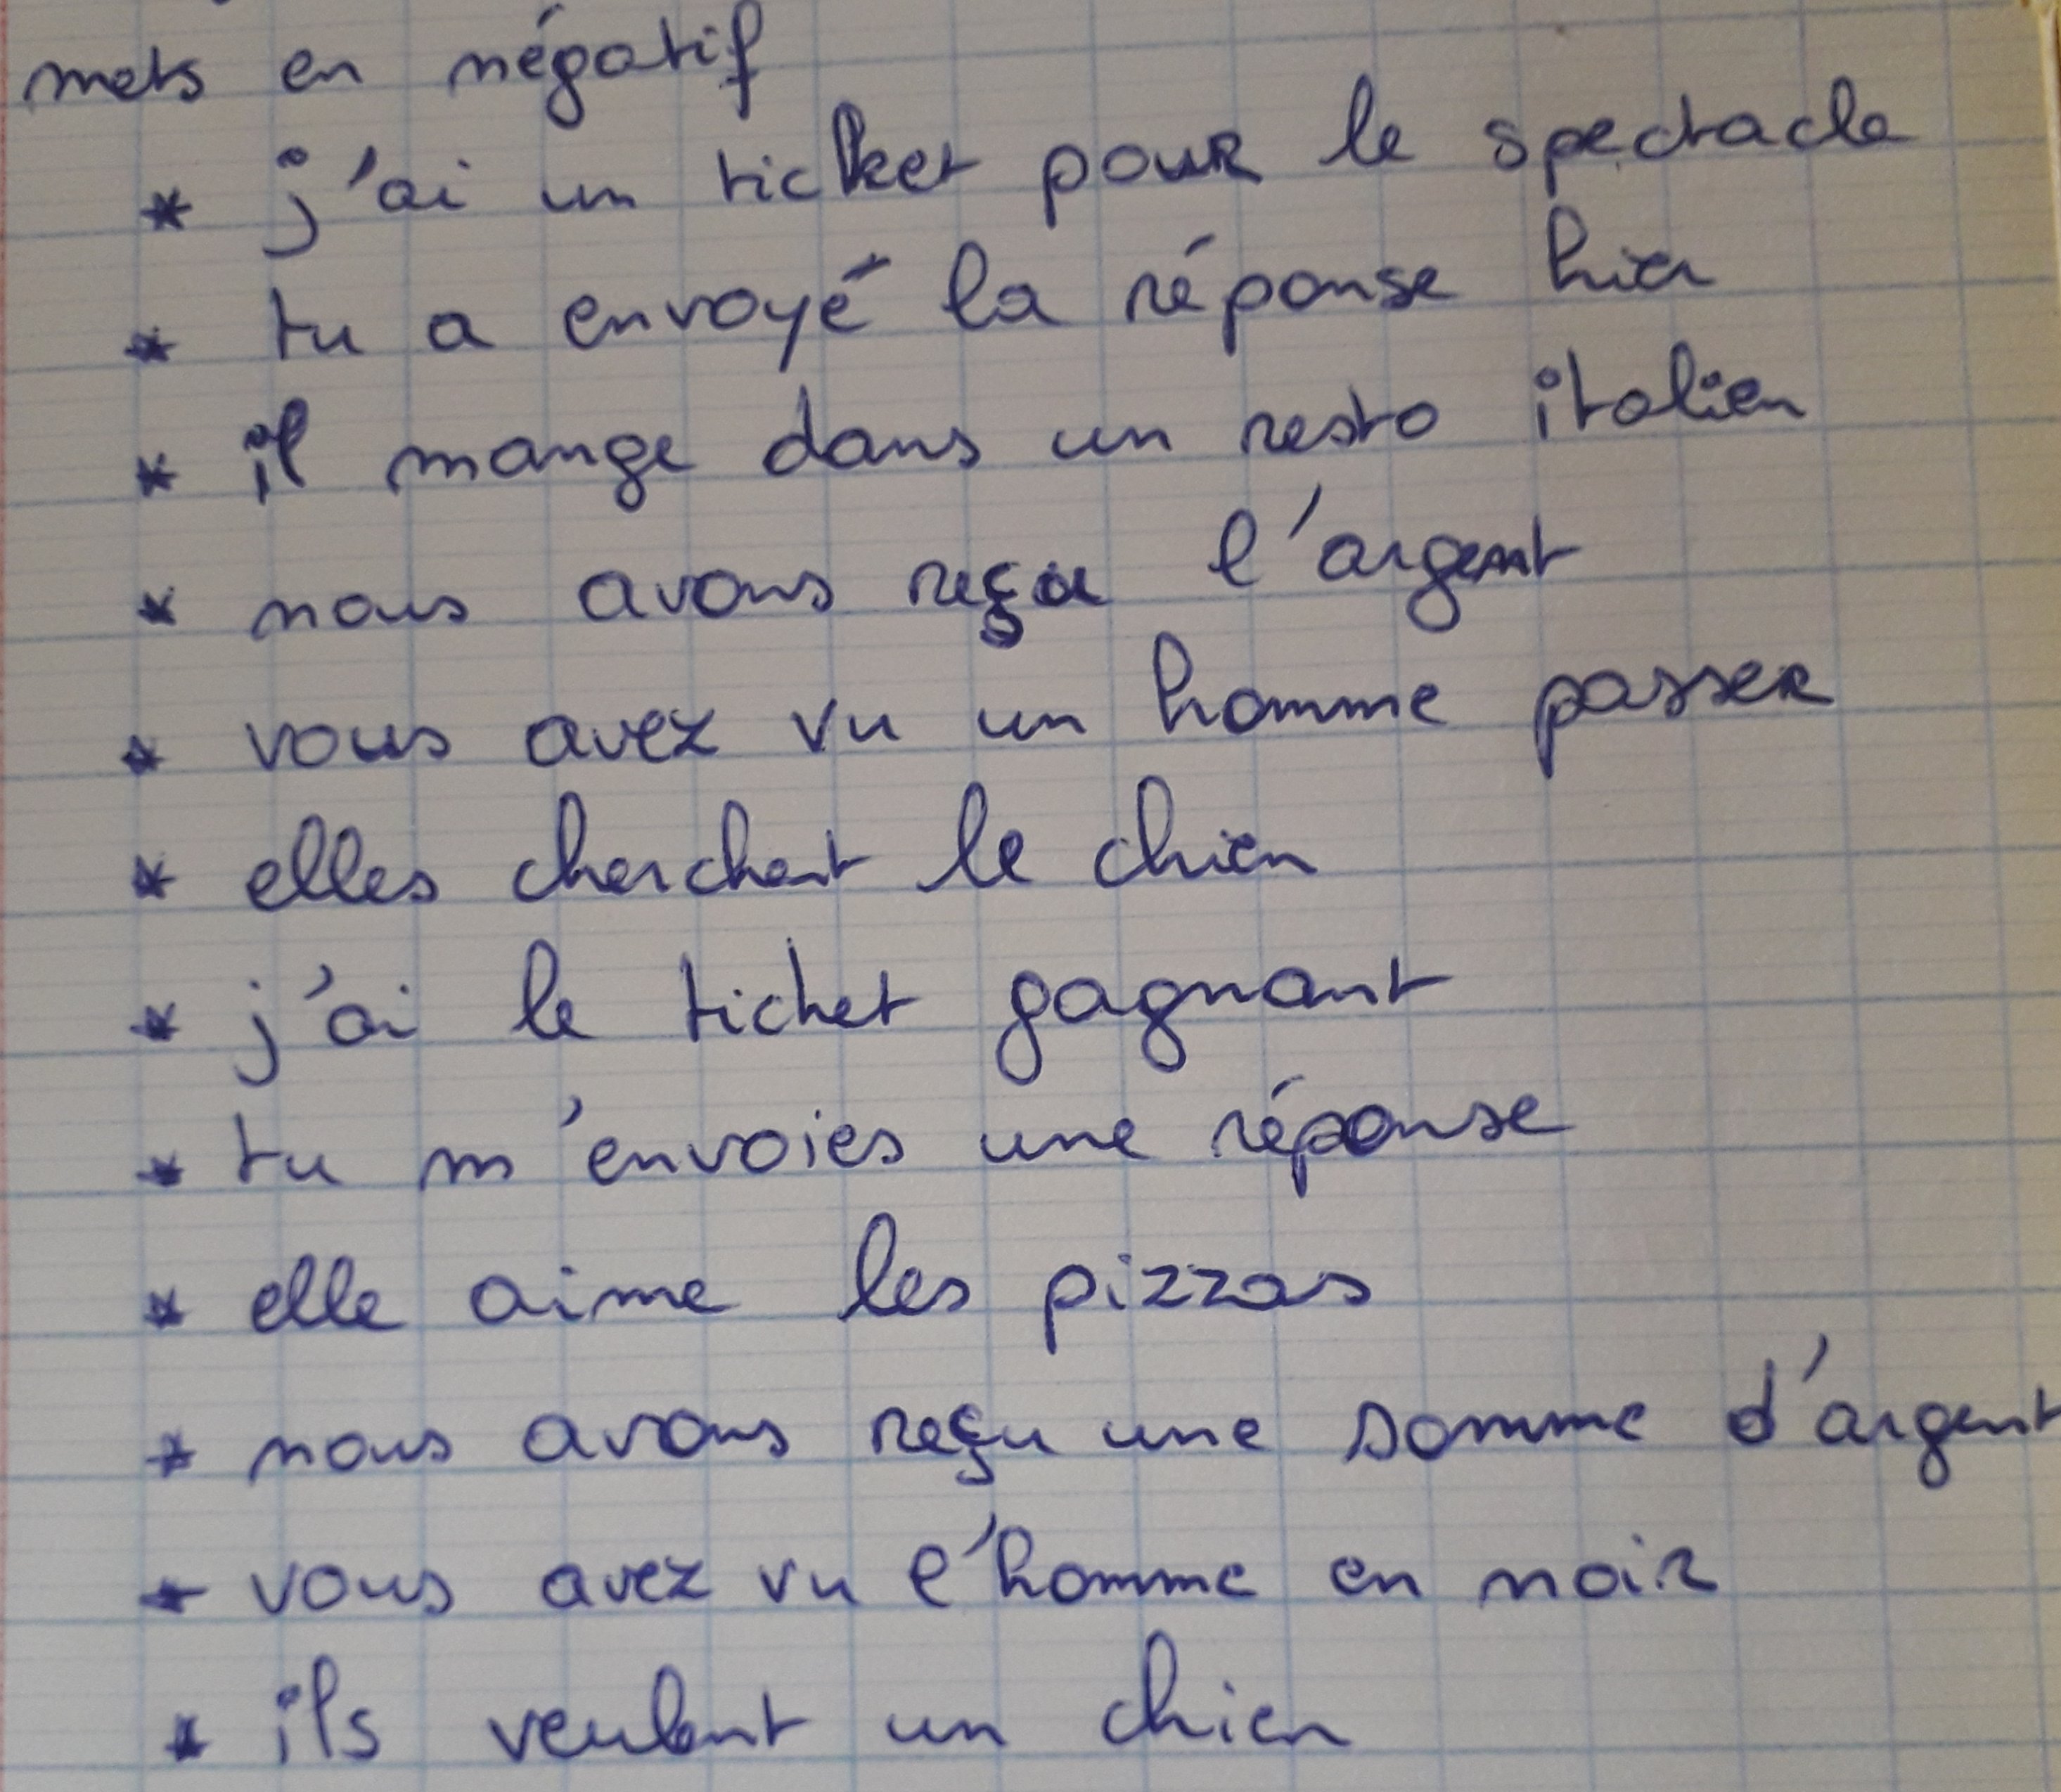 mets en négatif
* j'ai un ticket pour le spectacle
* tu a envoyé la réponse hier
* il mange dans un resto italien
* nous avons reçu l'argent
* vous avez vu un homme passer
* elles cherchent le chien
* j'ai le ticket gagnant
* tu m'envoies une réponse
* elle aime les pizzas
* nous avons reçu une somme d'argent
* vous avez vu l'homme en noir
* ils veulent un chien